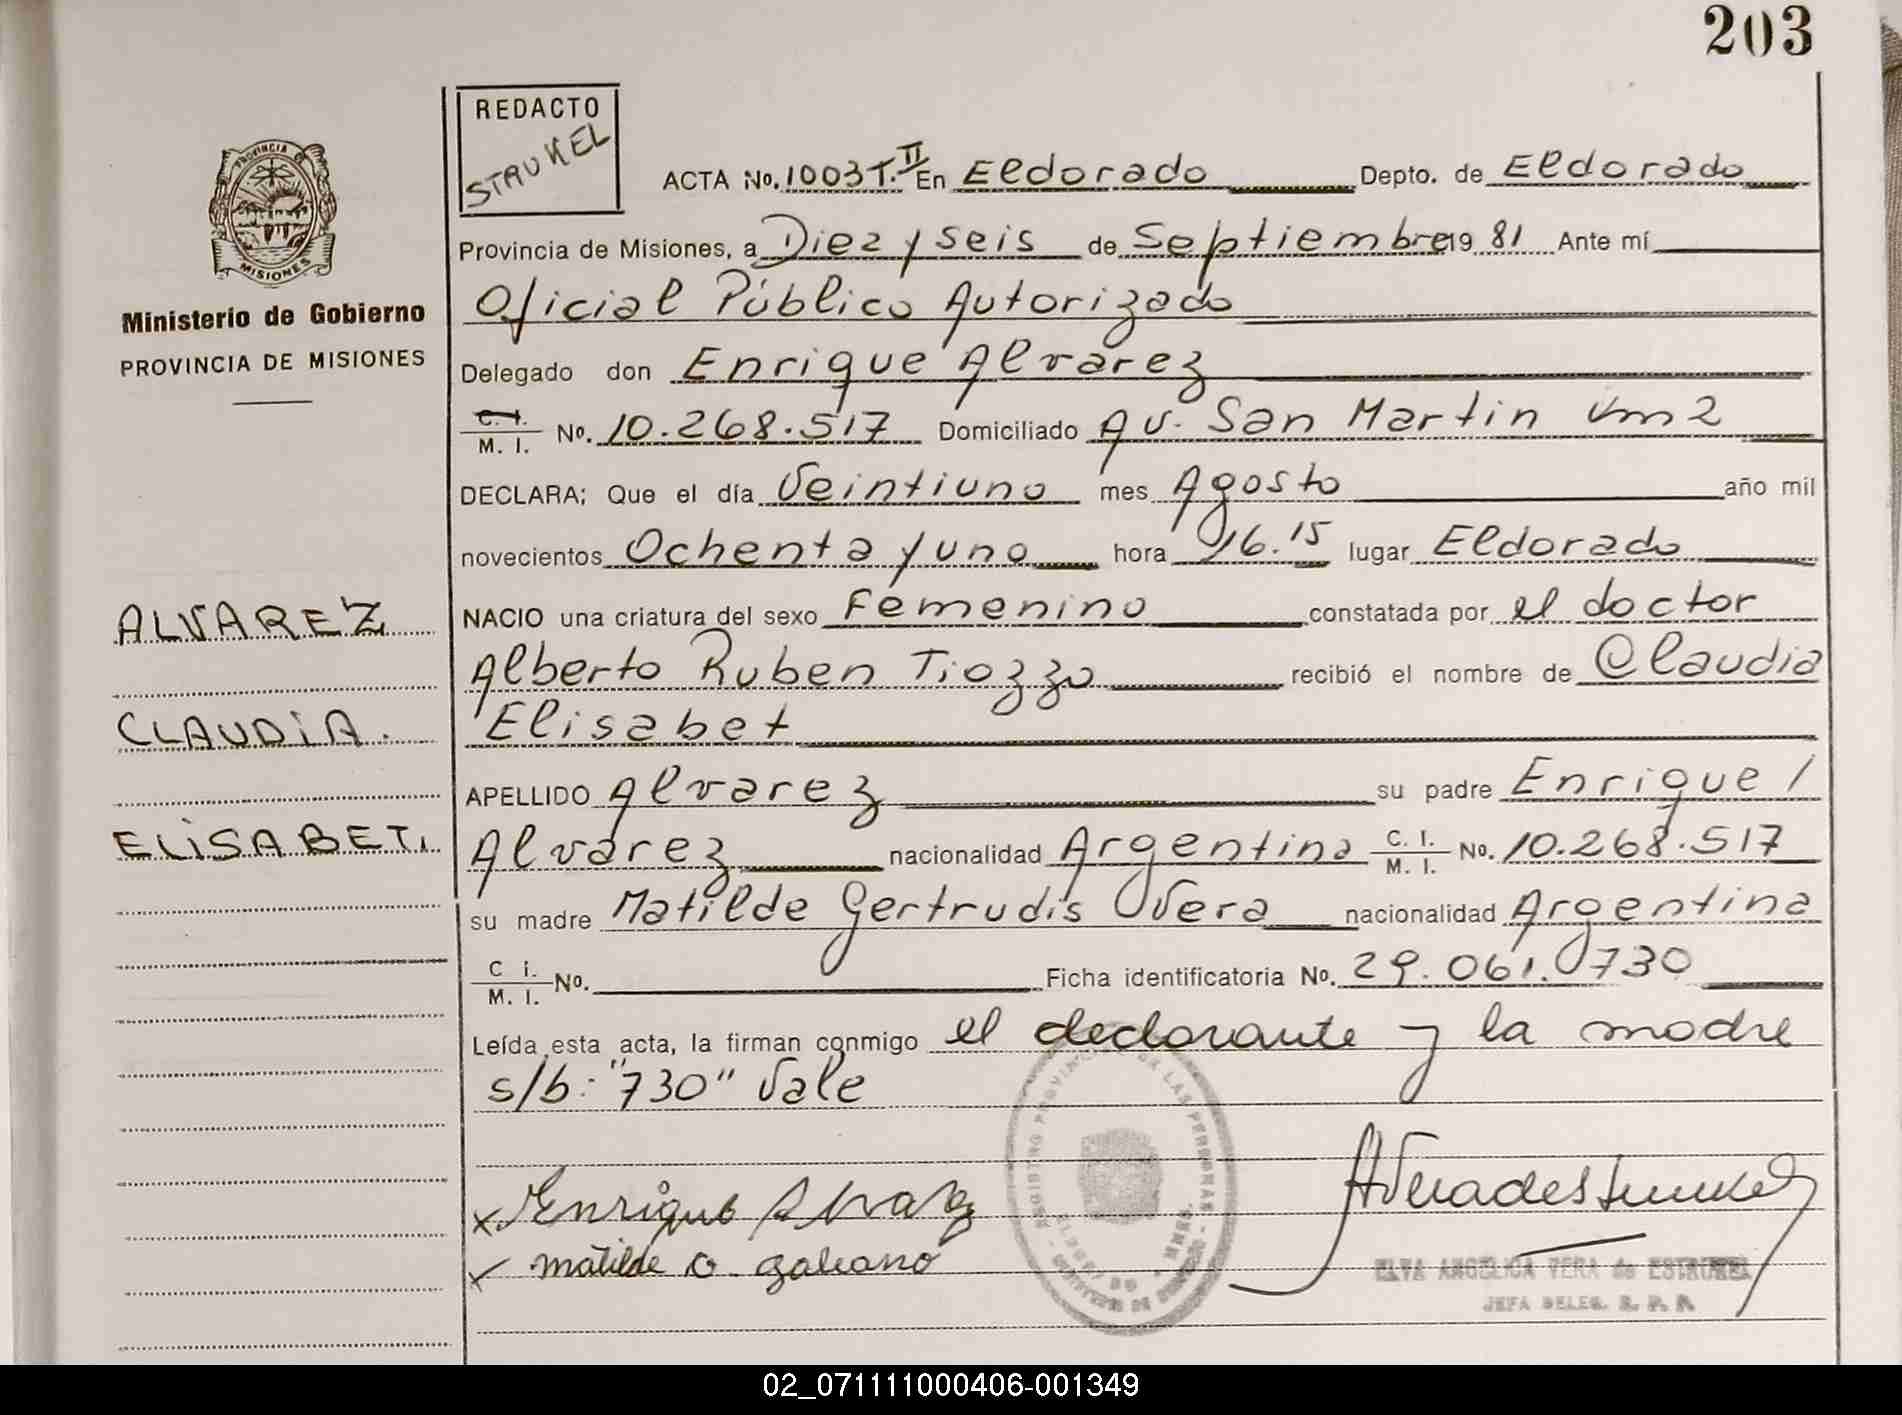 203
REDACTO
STRUKEL
PROVINCIA DE
MISIONES
Ministerio de Gobierno
PROVINCIA DE MISIONES
ACTA No. 1003 T. II En Eldorado Depto. de Eldorado
Provincia de Misiones, a Diez y seis de Septiembre 19 81 Ante mí
Oficial Público Autorizado
Delegado don Enrique Alvarez
C. I. M. I. No. 10.268.517 Domiciliado Av. San Martin Km 2
DECLARA; Que el día Veintiuno mes Agosto año mil
novecientos Ochenta y uno hora 16.15 lugar Eldorado
NACIO una criatura del sexo Femenino constatada por el doctor
Alberto Ruben Tiozzo recibió el nombre de Claudia
Elisabet
APELLIDO Alvarez su padre Enrique /
Alvarez nacionalidad Argentina C. I. M. I. No. 10.268.517
su madre Matilde Gertrudis Vera nacionalidad Argentina
C i. M. I. No. Ficha identificatoria No. 29.061.730
Leída esta acta, la firman conmigo el declarante y la madre
s/b: "730" Vale
ALVAREZ
CLAUDIA.
ELISABET.
x Enrique Alvarez
x matilde G. galeano
REGISTRO PROVINCIAL DE LAS PERSONAS
ELVA ANGELICA VERA de ESTRUKEL
JEFA DELEG. R. P. P.
02_071111000406-001349